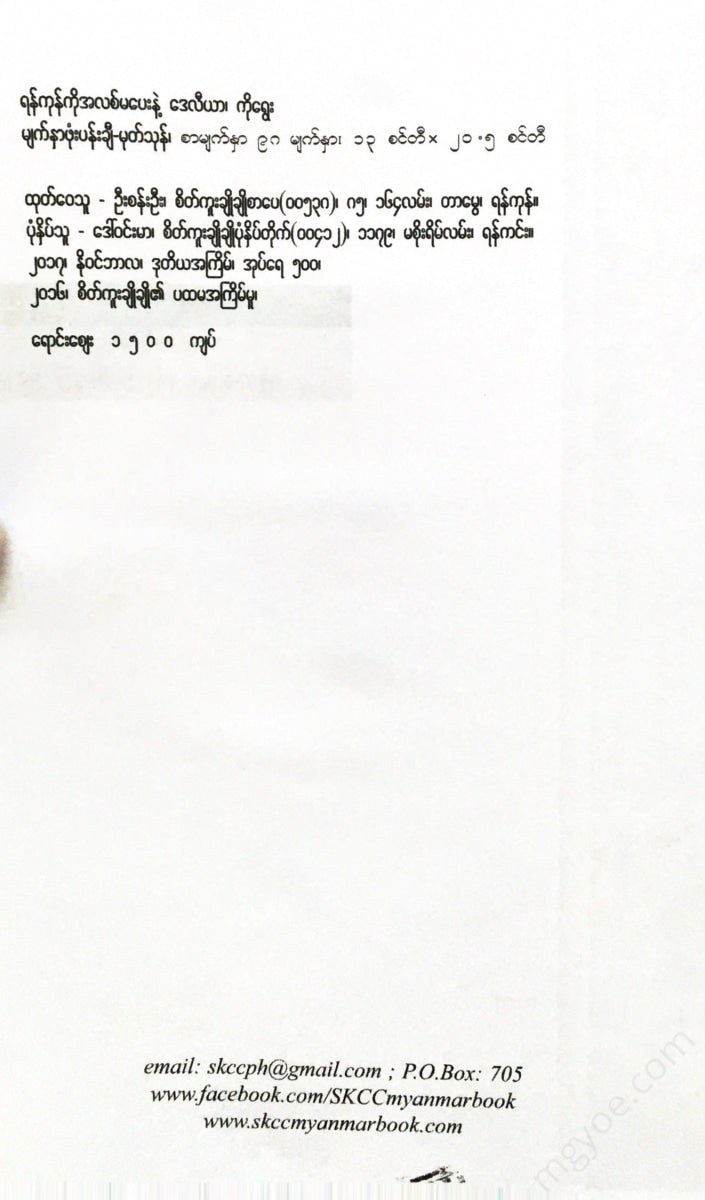 ရန်ကုန်ကိုအလစ်မပေးနဲ့ ဒေလီယာ၊ ကိုရွေး
မျက်နှာဖုံးပန်းချီ-မုတ်သုန်၊ စာမျက်နှာ ၉၈ မျက်နှာ၊ ၁၃ စင်တီ× ၂၀.၅ စင်တီ
ထုတ်ဝေသူ - ဦးစန်းဦး၊ စိတ်ကူးချိုချိုစာပေ(၀၀၅၃၈)၊ ၈၅၊ ၁၆၄လမ်း၊ တာမွေ၊ ရန်ကုန်။
ပုံနှိပ်သူ - ဒေါ်ဝင်းမာ၊ စိတ်ကူးချိုချိုပုံနှိပ်တိုက်(၀၀၄၁၂)၊ ၁၁၇၉၊ မစိုးရိမ်လမ်း၊ ရန်ကင်း။
၂၀၁၇၊ နိုဝင်ဘာလ၊ ဒုတိယအကြိမ်၊ အုပ်ရေ ၅၀၀၊
၂၀၁၆၊ စိတ်ကူးချိုချို၏ ပထမအကြိမ်မူ၊
ရောင်းဈေး ၁၅၀၀ ကျပ်
email: skccph@gmail.com ; P.O.Box: 705
www.facebook.com/SKCCmyanmarbook
www.skccmyanmarbook.com
mgyoe.com